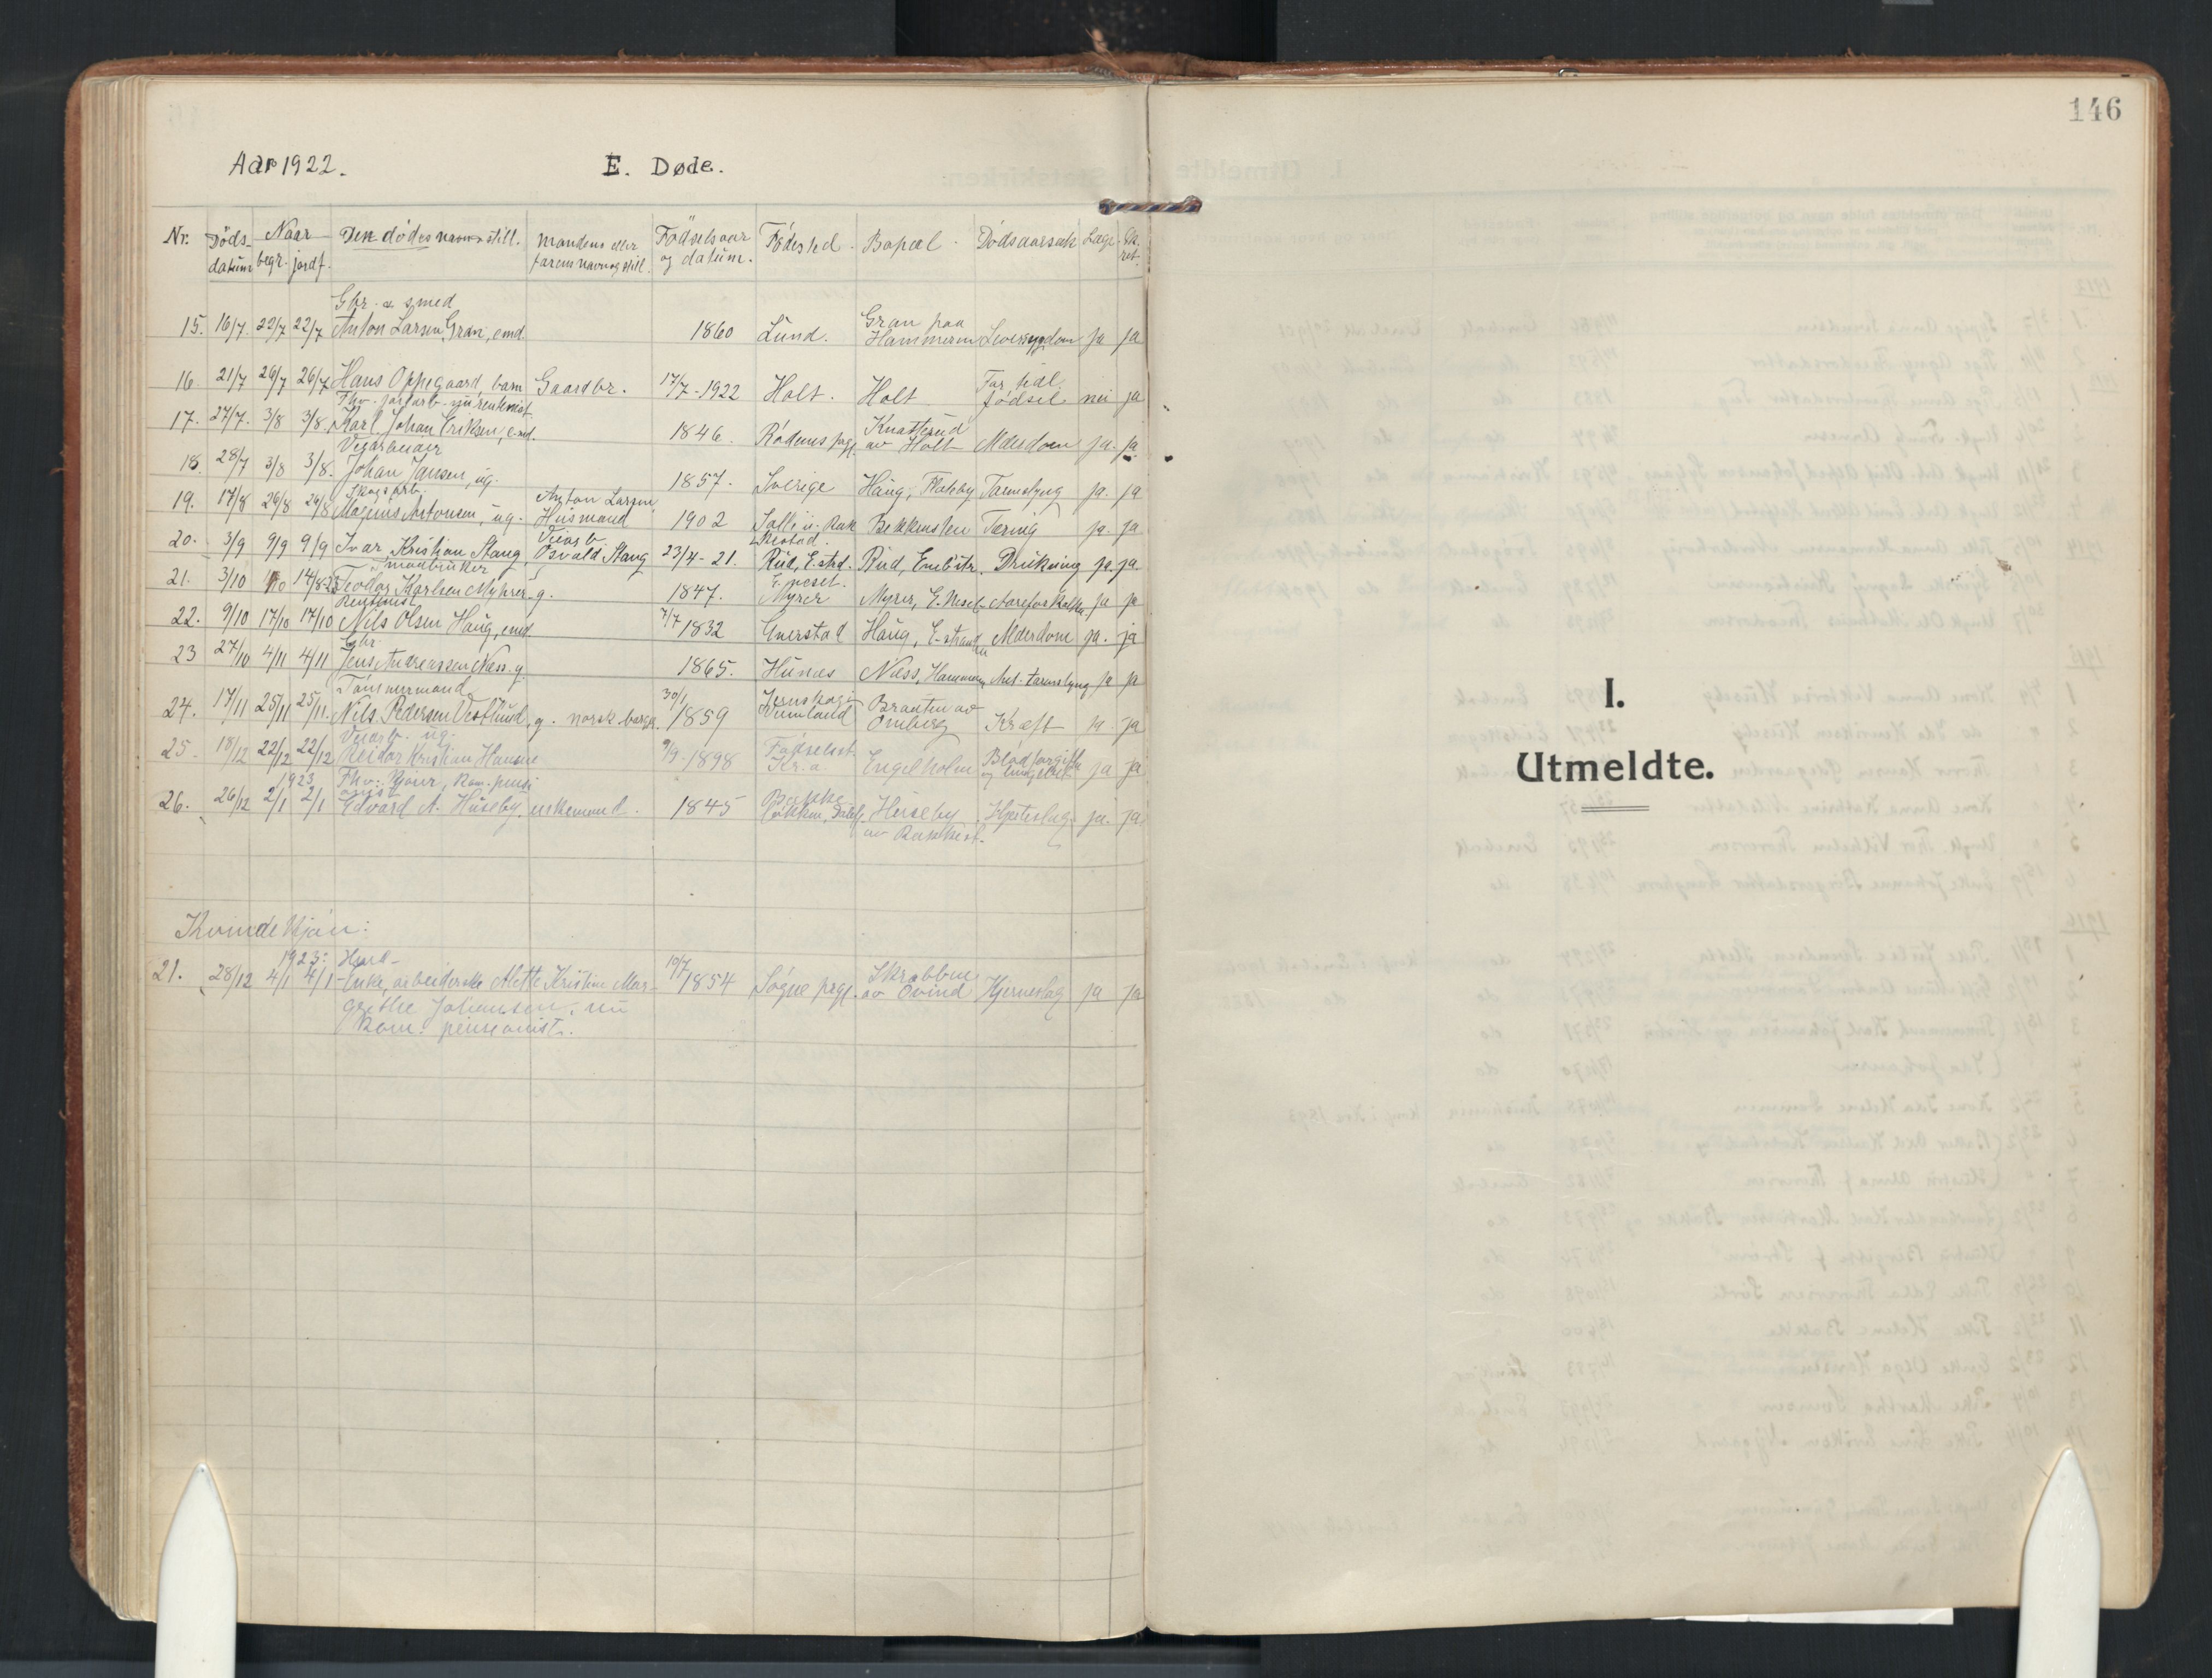 146
Aar 1922.
E. Døde.
Nr. Døds- datum Naar begr. jordf. Den dødes navn og still. Mandens eller farens navn og still. Fødselsaar og datum. Fødested. Bopæl. Dødsaarsak Læge
Gbr. & smed
15. 16/7. 22/7 22/7 Anton Larsen Gran, emd. 1860 Lund. Gran paa Hammeren Leversygdom ja ja
16. 21/7 26/7 26/7 Hans Oppegaard, barn Gaardbr. 17/7-1922 Holt. Holt For tidl. fødsel nei ja
Fhv. jordarb. nu rentenist
17. 27/7. 3/8 3/8. Karl Johan Eriksen, emd. 1846. Rødenes prgj. Knatterud av Holt Alderdom ja. ja
Veiarbeider
18. 28/7 3/8 3/8. Johan Jansen, ug. 1857. Sverige Haug, Flateby Tarmslyng ja. ja
Skogsarb.
19. 17/8 26/8 26/8 Magnus Antonsen, ug. Anton Larsen, Husmand 1902 Bekkensten Tæring ja. ja
20. 3/9 9/9 9/9 Ivar Kristian Stang Veiarb. Osvald Stang 23/4-21. Rud, E.strd. Rud, Enebstr. Drukning ja. ja.
maabruker
21. 3/10 14/8-23 Teodor Karlsen Myhrer g. 1847. E.neset. Myrer Myrer, E.Neset Aareforkalkn. ja ja
Rentenist
22. 9/10 17/10 17/10 Nils Olsen Haug, emd 7/7 1832 Gnerstad Haug, E-stranden Alderdom ja. ja
Gbr.
23 27/10 4/11 4/11 Jens Andreassen Næss. g. 1865. Huness Næss, Hammeren Ant. tarmslyng ja ja
Tømmermand
24. 17/11 25/11 25/11. Nils Pedersen Vestlund, g. norsk borger. 30/1 1859 Jernskog i Vermland Braaten av Omberg Kræft ja. ja
Veiarb. ug.
25. 18/12 22/12 22/12 Reidar Kristian Hansen 9/9-1898 Fødselsst. Kr.a. Engelholm Blodforgiftn. ja ja
1923 Fhv. kjører, kom. pensionist
26. 26/12 2/1 2/1 Edvard A. Huseby, enkemand. 1845 Bækkeløkken, Dalef. Huseby av Rakkest. Hjerteslag. ja. ja.
Kvindekjøn:
1923:
21. 28/12 4/1 4/1 - Enke, arbeiderske Alette Kristine Mar- 10/7 1854 Søgne prgj. Skrabben av Øvind Hjerneslag ja ja
grethe Johansen, nu
kom. pensionist.
I.
Utmeldte.